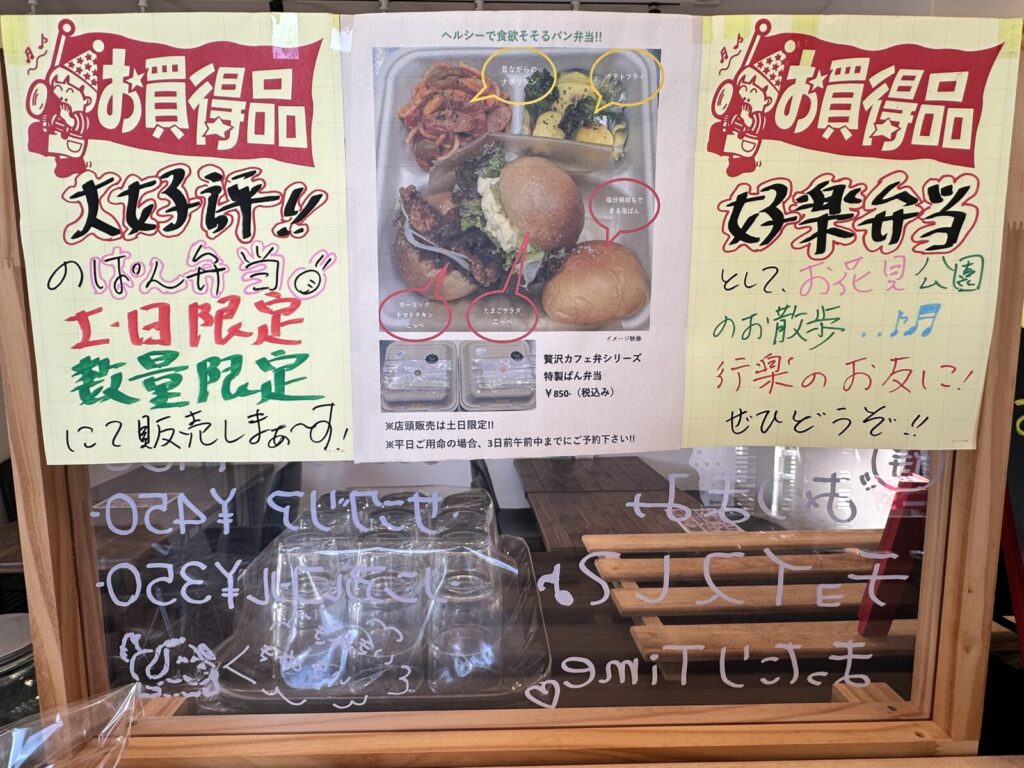 お買得品
大好評!!
のぱん弁当
土・日限定
数量限定
にて販売しまぁ～す!
ヘルシーで食欲そそるパン弁当!!
昔ながらの
ナポリタン
ポテトフライ
塩分補給もで
きる塩ぱん
ガーリック
トマトチキン
こっぺ
たまごサラダ
こっぺ
イメージ映像
贅沢カフェ弁シリーズ
特製ぱん弁当
￥850-（税込み）
※店頭販売は土日限定!!
※平日ご用命の場合、3日前午前中までにご予約下さい!!
お買得品
好楽弁当
として、お花見 公園
のお散歩...♪♬
行楽のお友に!
ぜひどうぞ!!
サングリア ￥450-
￥350-
チョイスして♪
まったりTime♡